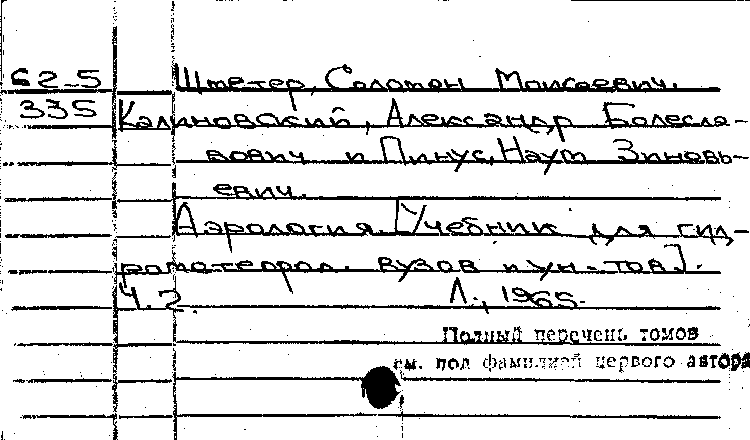 62-5 Штетер, Соломон Моисеевич.
335 Калиновский, Александр Болесла-
вович и Пинус, Наум Зиновь-
евич.
Аэрология. [Учебник для гид-
рометеорол. вузов и ун-тов].
Ч. 2. Л., 1965.
Полный перечень томов
см. под фамилией первого автора